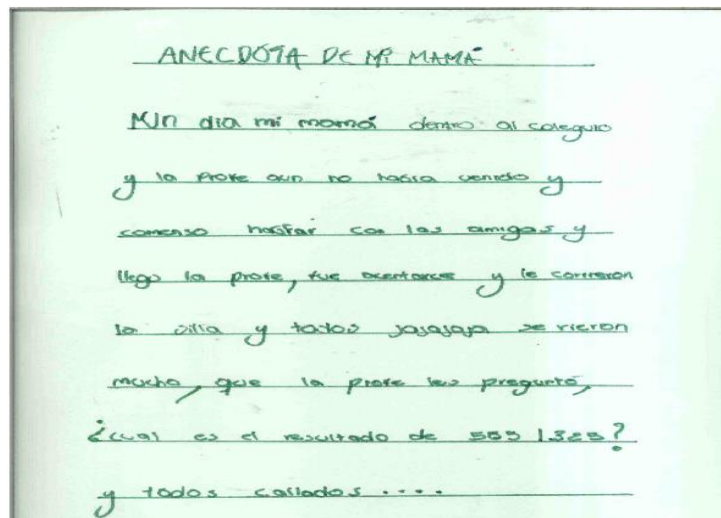 ANECDOTA DE MI MAMÁ
Un dia mi mamá dentro al coleguio
y la profe aun no habia venido y
comenso hablar con las amigas y
llego la profe, fue acentarce y le corrieron
la silla y todos jajajaja se rieron
mucho, que la profe les preguntó,
¿cual es el resultado de 555 1325?
y todos callados ....